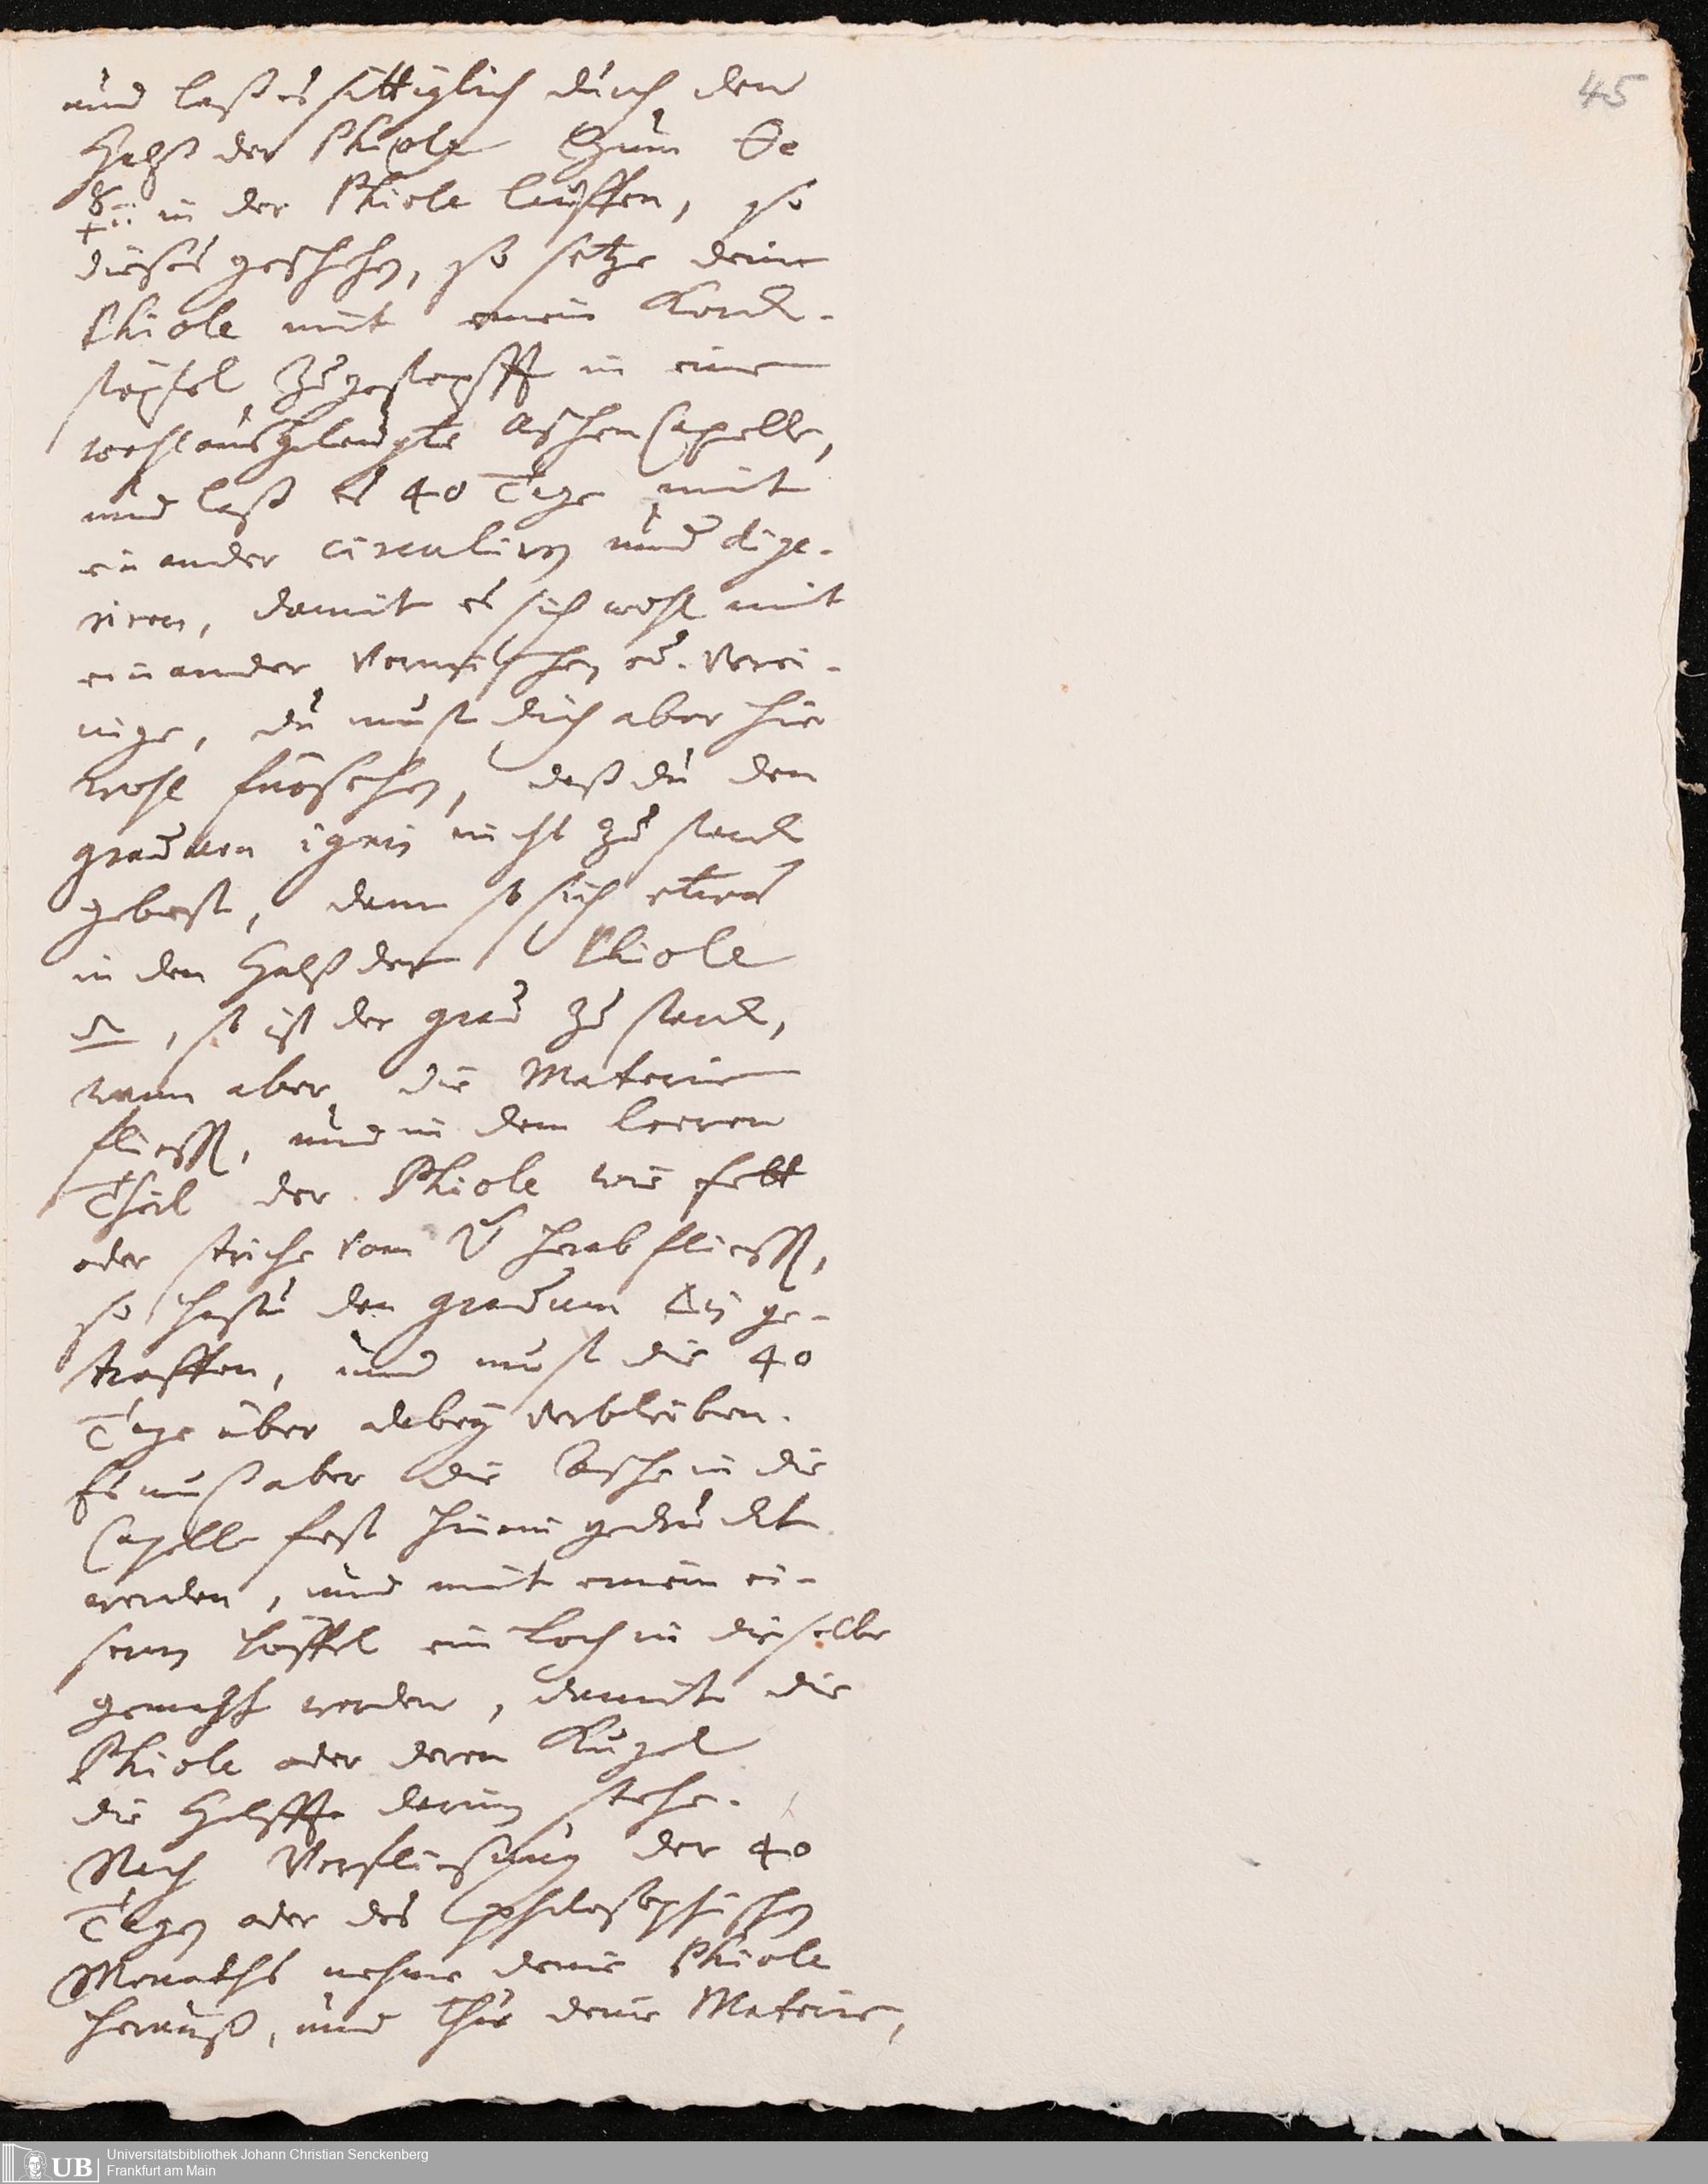 45
und laß es sittiglich durch den
Halß der Phiole Zum 🜔e
☿ii in der Phiole lauffen, so
dieses geschehen, so setze deine
Phiole mit einen Korck-
stöpsel zugestopfft in eine
wohl ausgelaugte AschenCapelle,
und laß es 40 Tage mit
einander circuliren und dige-
riren, damit es sich wohl mit
einander Vermischen u. Verei-
nige, du must dich aber hier
wohl fürsehen, daß du den
gradum ignis nicht zu starck
gebest, dann so sich etwas
in den Halß der Phiole
, so ist der grad zu starck,
wann aber die Materie
fliesst, und in dem leeren
Theil der Phiole wie fett
oder striche vom herab fliesst,
so hastu den gradum 🜂is ge-
troffen, und must die 40
Tage über dabey verbleiben.
Es muß aber die Asche in die
Capelle fest hinein gedruckt
werden, und mit einem ei-
sern Löffel ein Loch in dieselbe
gemacht werden, damit die
Phiole oder deren Kugel
die Helffte darinn stehe.
Nach Verfliesung der 40
Tagen oder des philosophischen
Monaths nehme deine Phiole
herauß, und Thue deine Materie,
UB
Universitätsbibliothek Johann Christian Senckenberg
Frankfurt am Main